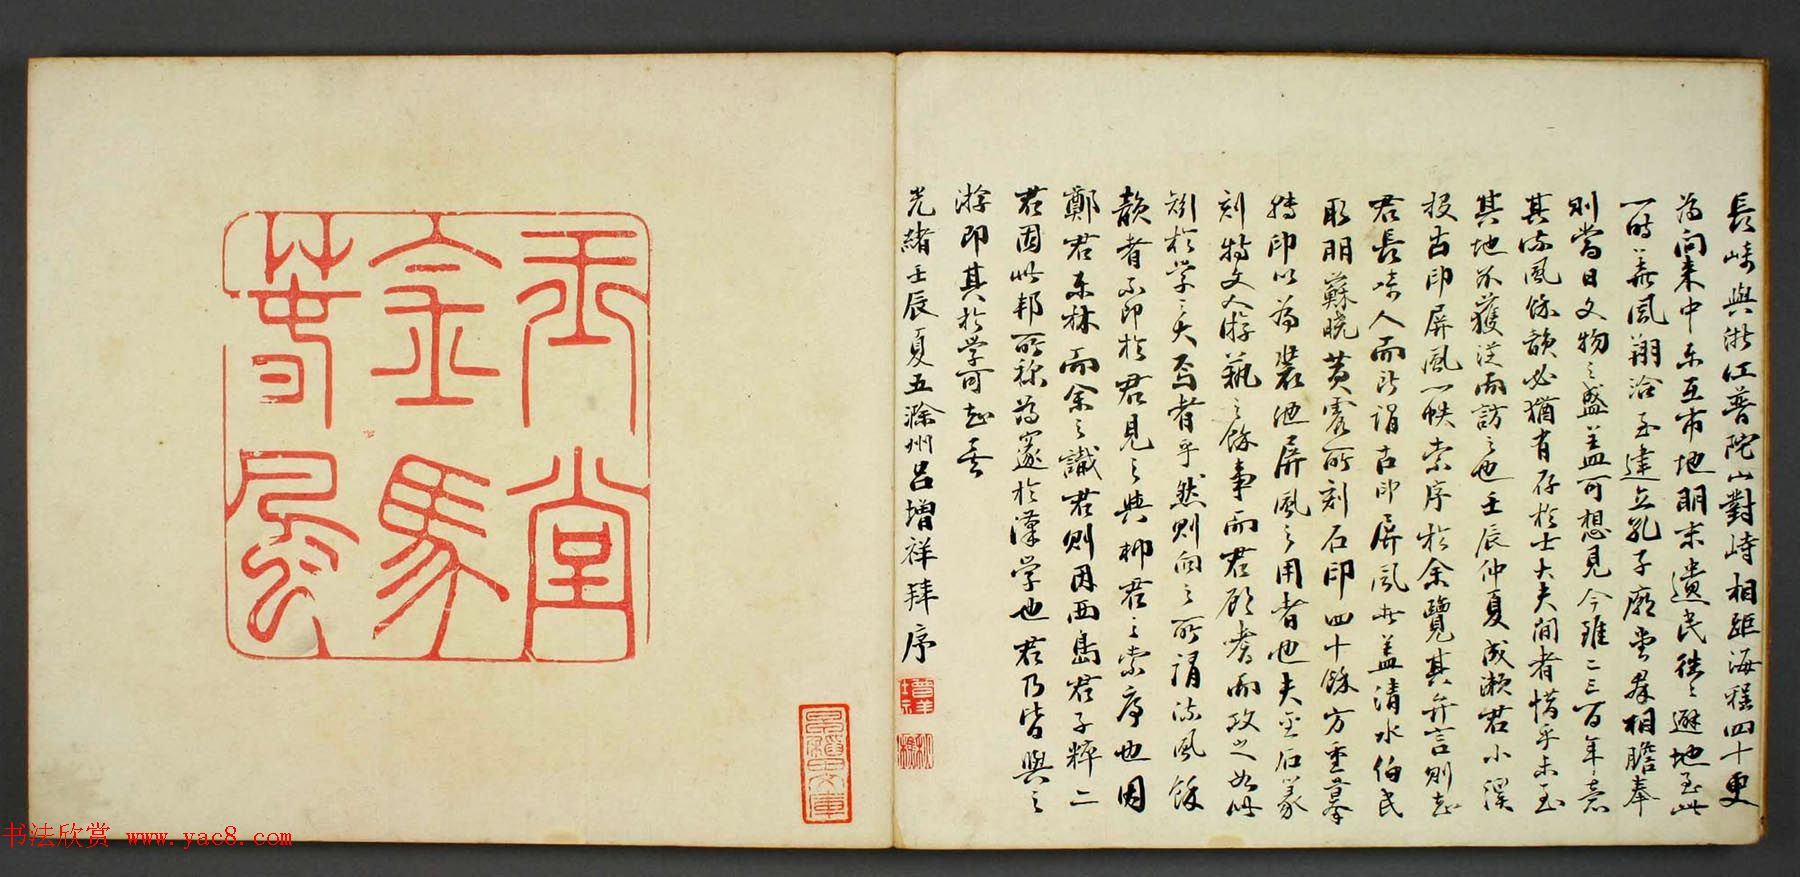 長崎與浙江普陀山對峙相距海程四十更
為向來中東互市地明末遺民往々避地至此
一時華風翔洽至建立孔子廟堂羣相瞻奉
則當日文物之盛蓋可想見今雖二三百年意
其流風餘韻必猶有存於士大夫間者惜乎未至
其地不獲從而訪之也壬辰仲夏成瀬君小溪
投古印屏風一帙索序於余覽其弁言則知
君長崎人而所謂古印屏風者蓋清水伯民
取明蘇曉黃霞所刻石印四十餘方重摹
轉印以為裝池屏風之用者也夫金石篆
刻特文人游藝之餘事而君顧嗜而攻之如此
矧於學之大焉者乎然則向之所謂流風餘
韻者不即於君見之與柳君之索序也因
鄭君東林而余之識君則因西島君子粹二
君固此邦所稱為邃於漢學也君乃皆與之
游即其於學可知矣
光緒壬辰夏五滁州呂增祥拜序
玉堂
金馬
等風
書法欣賞 www.yac8.com